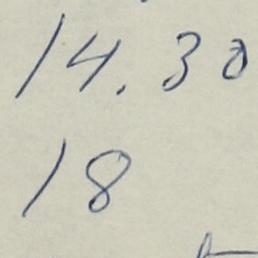 14.30
18